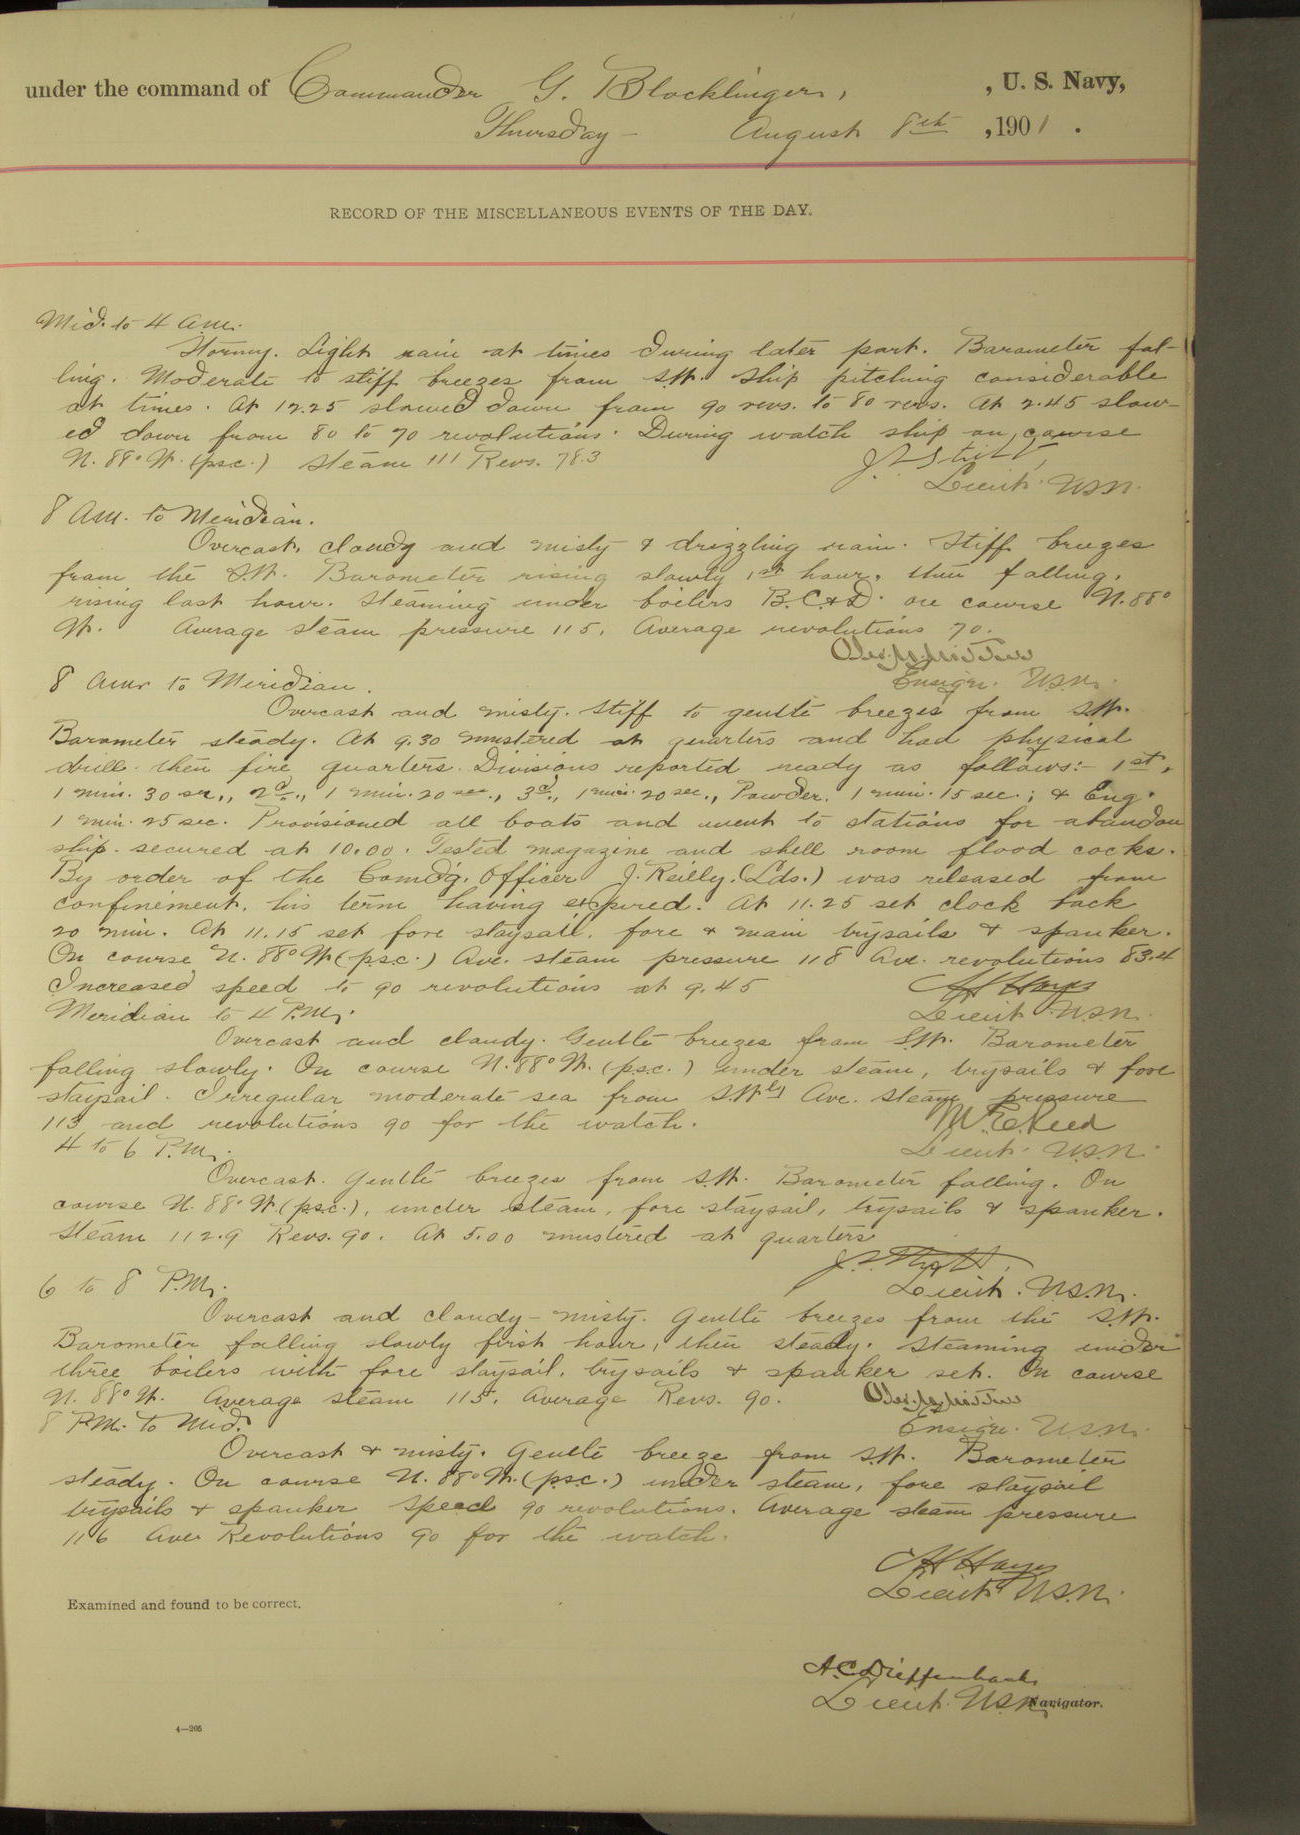 under the command of Commander G. Blocklinger, , U. S. Navy,
Thursday - August 8th , 1901 .
RECORD OF THE MISCELLANEOUS EVENTS OF THE DAY.
Mid. to 4 a.m.
Stormy. Light rain at times during later part. Barometer fal-
ling. Moderate to stiff breezes from S.W. Ship pitching considerable
at times. At 12.25 slowed down from 90 revs. to 80 revs. At 2.45 slow-
ed down from 80 to 70 revolutions. During watch ship on course
N. 88° W. (psc.) Steam 111 Revs. 78.3
Lieut. U.S.N.
8 a.m. to Meridian.
Overcast, cloudy and misty & drizzling rain. Stiff breezes
from the S.W. Barometer rising slowly 1st hour, then falling,
rising last hour. Steaming under boilers B. C. & D. on course N. 88°
W. Average steam pressure 115, Average revolutions 70.
Ensign. U.S.N.
8 a.m. to Meridian.
Overcast and misty. Stiff to gentle breezes from S.W.
Barometer steady. At 9.30 mustered at quarters and had physical
drill. then fire quarters. Divisions reported ready as follows:- 1st,
1 min. 30 sec., 2d., 1 min. 20 sec., 3d., 1 min. 20 sec., Powder. 1 min. 15 sec.; & Eng.
1 min. 25 sec. Provisioned all boats and went to stations for abandon
ship. secured at 10.00. Tested magazine and shell room flood cocks.
By order of the Comdg. Officer J. Reilly. (Lds.) was released from
confinement, his term having expired. At 11.25 set clock back
20 min. At 11.15 set fore staysail, fore & main trysails & spanker.
On course N. 88° W. (p.s.c.) Ave. steam pressure 118 Ave. revolutions 83.4
Increased speed to 90 revolutions at 9.45
C H Hayes
Lieut U.S.N.
Meridian to 4 P.M.
Overcast and cloudy. Gentle breezes from S.W. Barometer
falling slowly. On course N. 88° W. (p.s.c.) under steam, trysails & fore
staysail. Irregular moderate sea from S.W'ly Ave. steam pressure
113 and revolutions 90 for the watch.
M. E. Reed
Lieut. U.S.N.
4 to 6 P.M.
Overcast. Gentle breezes from S.W. Barometer falling. On
course N. 88° W. (p.s.c.), under steam, fore staysail, trysails & spanker.
Steam 112.9 Revs. 90. At 5.00 mustered at quarters
Lieut. U.S.N.
6 to 8 P.M.
Overcast and cloudy - misty. Gentle breezes from the S.W.
Barometer falling slowly first hour, then steady. Steaming under
three boilers with fore staysail, trysails & spanker set. On course
N. 88° W. Average steam 115, Average Revs. 90.
Ensign. U.S.N.
8 P.M. to Mid.
Overcast & misty. Gentle breeze from S.W. Barometer
steady. On course N. 88° W. (p.s.c.) under steam, fore staysail
trysails & spanker Speed 90 revolutions. Average steam pressure
116 Aver Revolutions 90 for the watch.
C H Hayes
Lieut U.S.N.
Examined and found to be correct.
A. C. Dieffenbach
Lieut. U.S.N. Navigator.
4—205